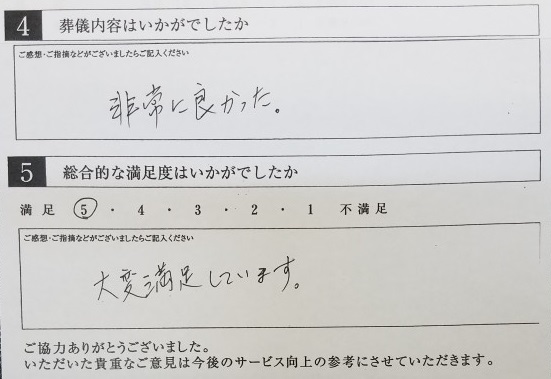 4 葬儀内容はいかがでしたか
ご感想・ご指摘などがございましたらご記入ください
非常に良かった。
5 総合的な満足度はいかがでしたか
満足 5 ・ 4 ・ 3 ・ 2 ・ 1 不満足
ご感想・ご指摘などがございましたらご記入ください
大変満足しています。
ご協力ありがとうございました。
いただいた貴重なご意見は今後のサービス向上の参考にさせていただきます。